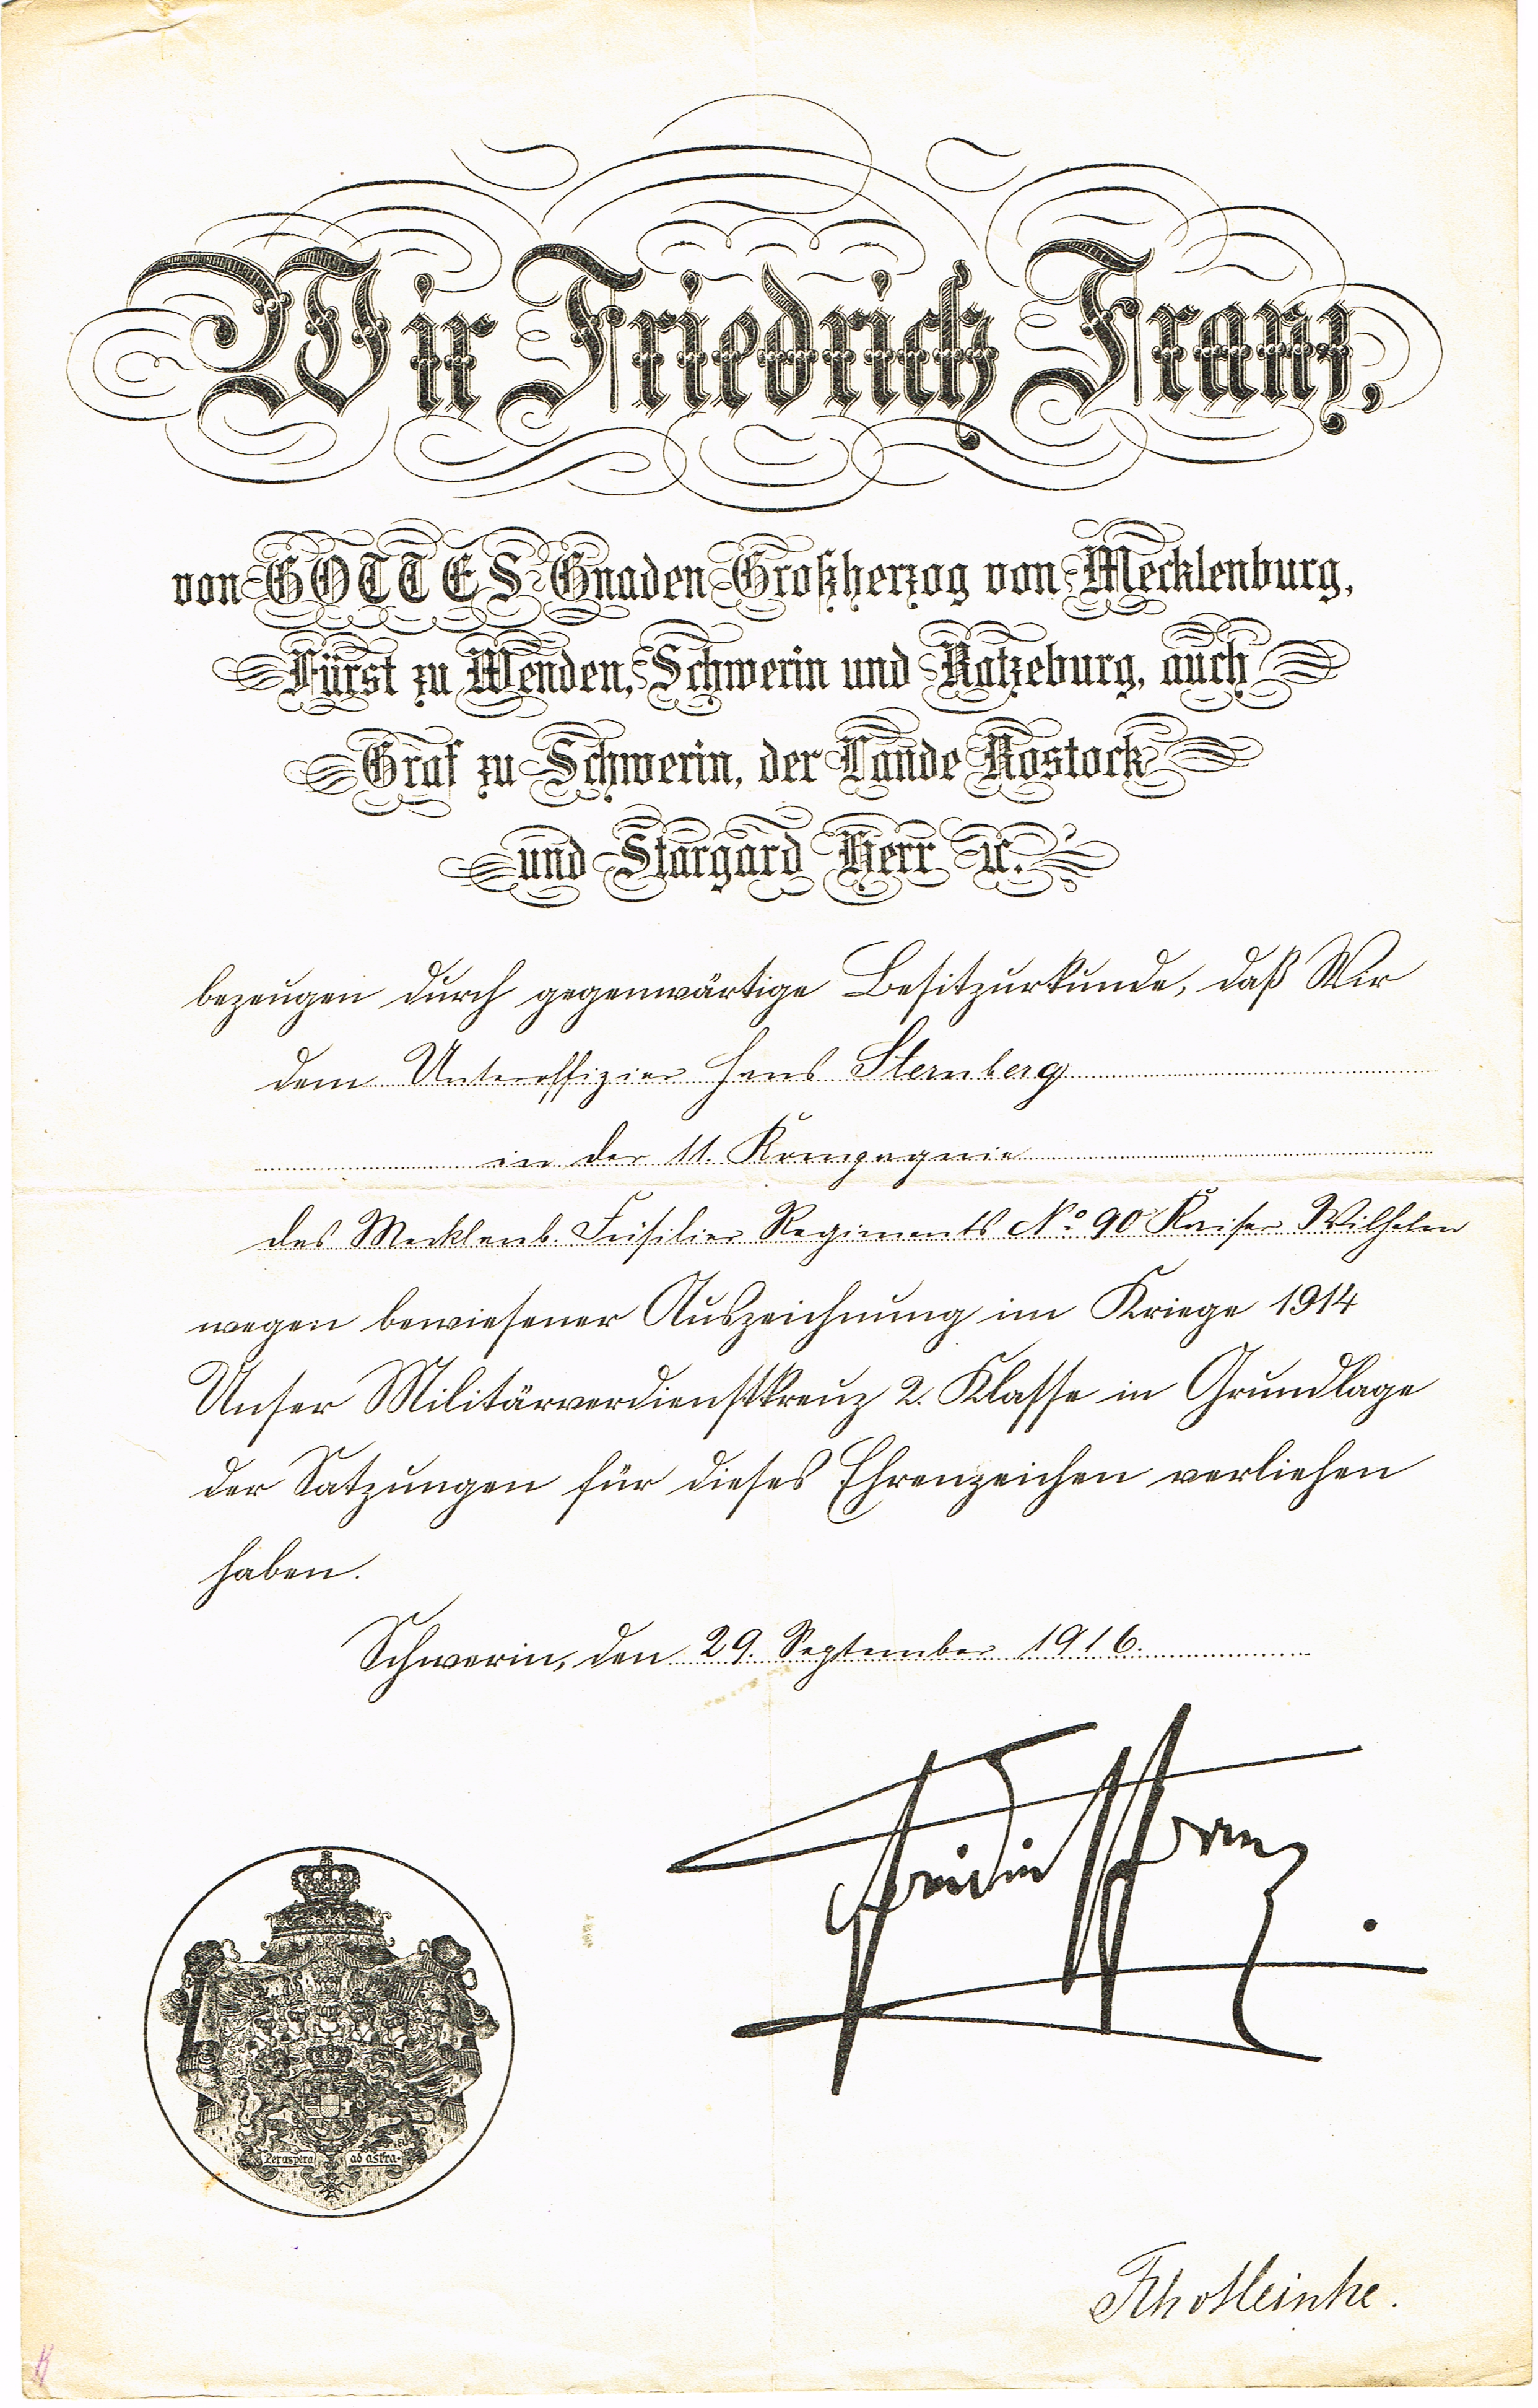 Wir Friedrich Franz,
von GOTTES Gnaden Großherzog von Mecklenburg,
Fürst zu Wenden, Schwerin und Ratzeburg, auch
Graf zu Schwerin, der Lande Rostock
und Stargard Herr ꝛc.
bezeugen durch gegenwärtige Besitzurkunde, daß Wir
dem Unteroffizier Hans Sternberg
in der 11. Kompagnie
des Mecklenb. Füsilier Regiments No. 90 Kaiser Wilhelm
wegen bewiesener Auszeichnung im Kriege 1914
Unser Militärverdienstkreuz 2. Klasse in Grundlage
der Satzungen für dieses Ehrenzeichen verliehen
haben.
Schwerin, den 29. September 1916.
Friedrich Franz
Per aspera ad astra.